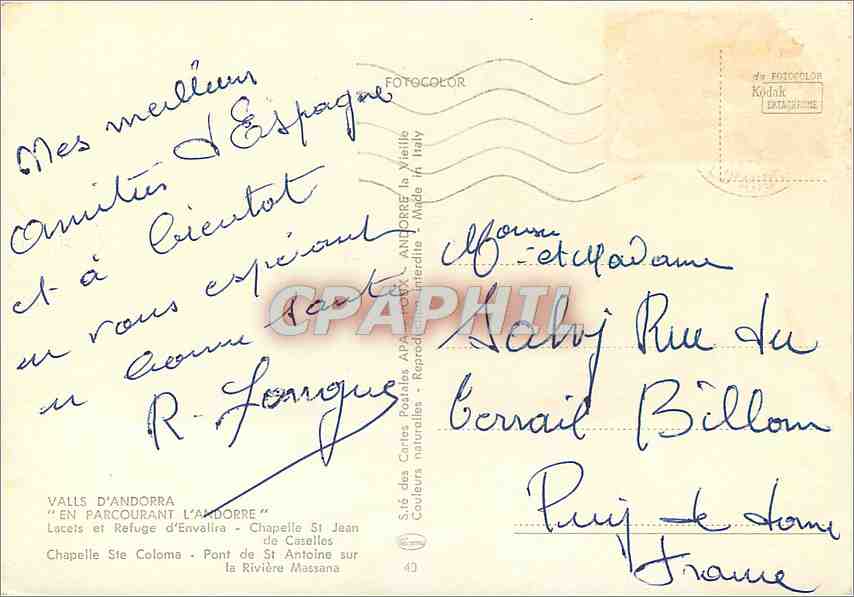 FOTOCOLOR
du FOTOCOLOR
Kodak
EKTACHROME
Mes meilleurs
amitiés d'Espagne
et à bientot
en vous espérant
en bonne santé
R. Jongue
Monsieur
et Madame
Salvy Rue du
Terrail Billom
Puy de dome
France
S.té des Cartes Postales APA ANDORRE la Vieille
Couleurs naturelles - Reproduction interdite - Made in Italy
VALLS D'ANDORRA
"EN PARCOURANT L'ANDORRE"
Lacets et Refuge d'Envalira - Chapelle St Jean
de Caselles
Chapelle Ste Coloma - Pont de St Antoine sur
la Rivière Massana
40
CPAPHIL